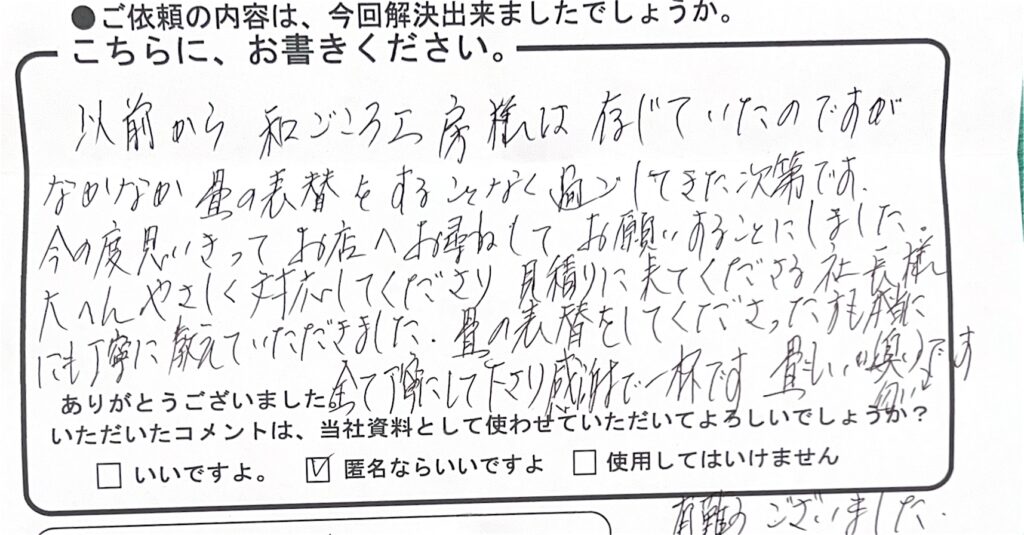 ●ご依頼の内容は、今回解決出来ましたでしょうか。
こちらに、お書きください。
以前から 和ごころ工房様は 存じていたのですが
なかなか 畳の表替をすることなく 過ごしてきた次第です.
今の度思いきって お店へお尋ねして お願いすることにしました.
大へんやさしく対応してくださり 見積りに来てくださる社長様
にも丁寧に教えていただきました. 畳の表替をしてくださった
全て丁寧にして下さり感謝で一杯です 畳も
ありがとうございました
いただいたコメントは、当社資料として使わせていただいてよろしいでしょうか？
□ いいですよ。 ☑ 匿名ならいいですよ □ 使用してはいけません
有難うございました.